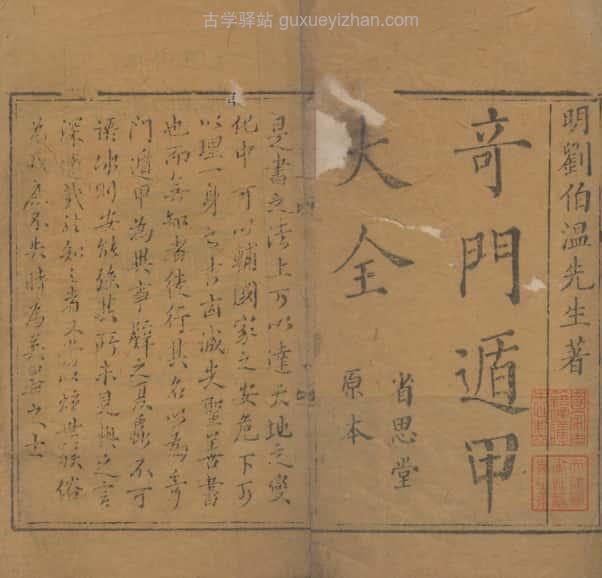 古学驿站 guxueyizhan.com
明劉伯温先生著
奇門遁甲
大全
省思堂
原本
是書之法上可以達天地之變
化中可以輔國家之安危下可
以理一身之吉凶誠失聖善書
也而無知者徒行其名以為奇
門遁甲為異事譬之夏蟲不可
語冰則安能強其所未見與之言
深遠哉於知之者又以炫世駭俗
為
不失時為
之士